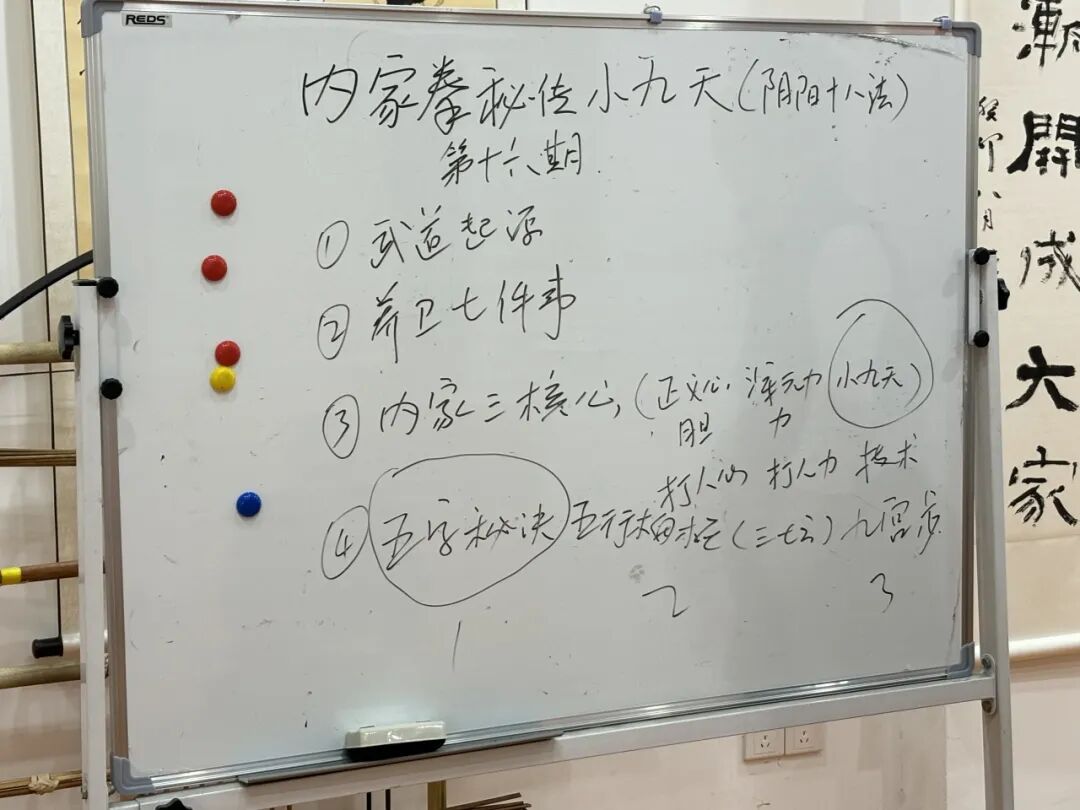 REDS
内家拳秘传小九天(阴阳十八法)
第十六期
① 武道起源
② 养卫七件事
③ 内家三核心(正义心 浑元力 小九天)
胆 力
打人心 打人力 技术
④ 五字秘诀 五行桩(三七六)九宫步
1 2 3
渐開成大家
癸卯八月